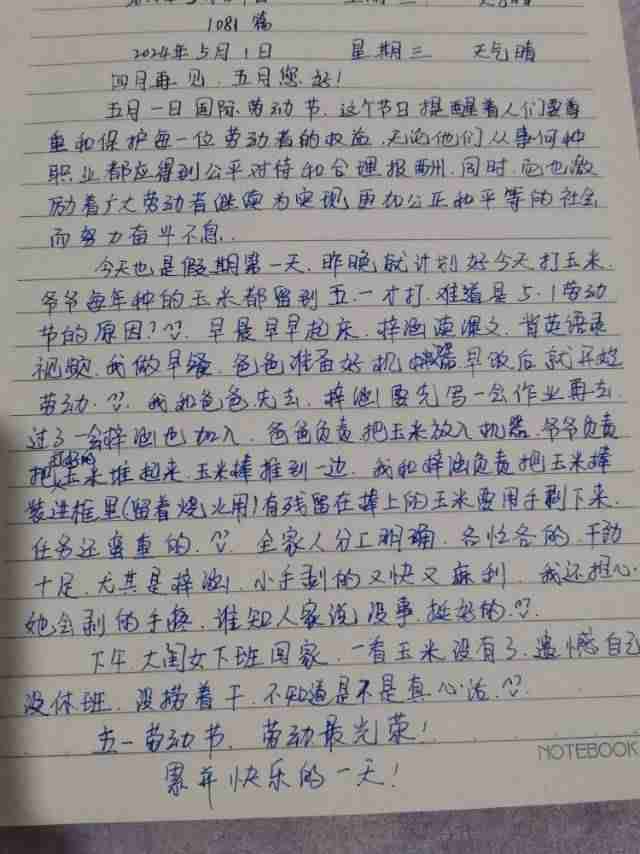 1081篇
2024年5月1日 星期三 天气晴
四月再见,五月您好!
五月一日国际劳动节,这个节日提醒着人们要尊
重和保护每一位劳动者的权益,无论他们从事何种
职业都应得到公平对待和合理报酬.同时,它也激
励着广大劳动者继续为实现更加公正和平等的社会
而努力奋斗不息.
今天也是假期第一天.昨晚就计划好今天打玉米.
爷爷每年种的玉米都留到五.一才打.难道是5.1劳动
节的原因?早晨早早起床.梓涵读课文.背英语录
视频.我做早餐.爸爸准备好机器早饭后就开始
劳动.我和爸爸先去.梓涵要先写一会作业再去.
过了一会梓涵也加入.爸爸负责把玉米放入机器.爷爷负责
把打好的玉米堆起来.玉米棒推到一边.我和梓涵负责把玉米棒
装进框里(留着烧火用)有残留在棒上的玉米要用手剥下来.
任务还蛮重的.全家人分工明确.各忙各的.干劲
十足.尤其是梓涵,小手剥的又快又麻利.我还担心
她会剥的手疼.谁知人家说没事.挺好的.
下午大闺女下班回家.一看玉米没有了.遗憾自己
没休班.没捞着干.不知道是不是真心话.
五一劳动节.劳动最光荣!
累并快乐的一天!
NOTEBOOK